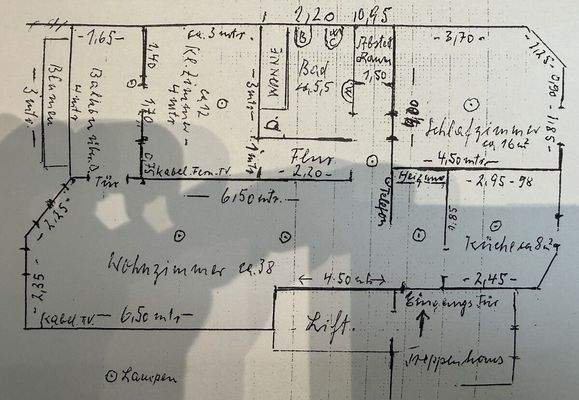 ca. 3 mtr.
2,20
0,95
-1,65-
1,40
Kl. Zimmer
ca 12
4 mtr
WANNE
B
WC
Bad
ca. 5,5
Abstell
Raum
1,50
- 3,70 -
1,25
0,90
Blumen
- 3 mtr. -
Balkon
4 mtr
1,70
- 3 mtr -
D.
W
4,00
Schlafzimmer
ca 16 m²
- 1,85 -
0,75
Kabel. Fern. TV.
1 mtr
Flur
- 2,20 -
- 4,50 mtr. -
Tür
- 6,50 mtr. -
Telefon
Heizung
- 2,95 - 98
- 2,25 -
1,85
Küche ca 8 m²
Wohnzimmer ca. 38
- 2,35
← 4.50 mtr →
- 2,45 -
Kabel. TV. - 6,50 mtr -
Eingangs Tür
Lift.
Treppenhaus
Lampen